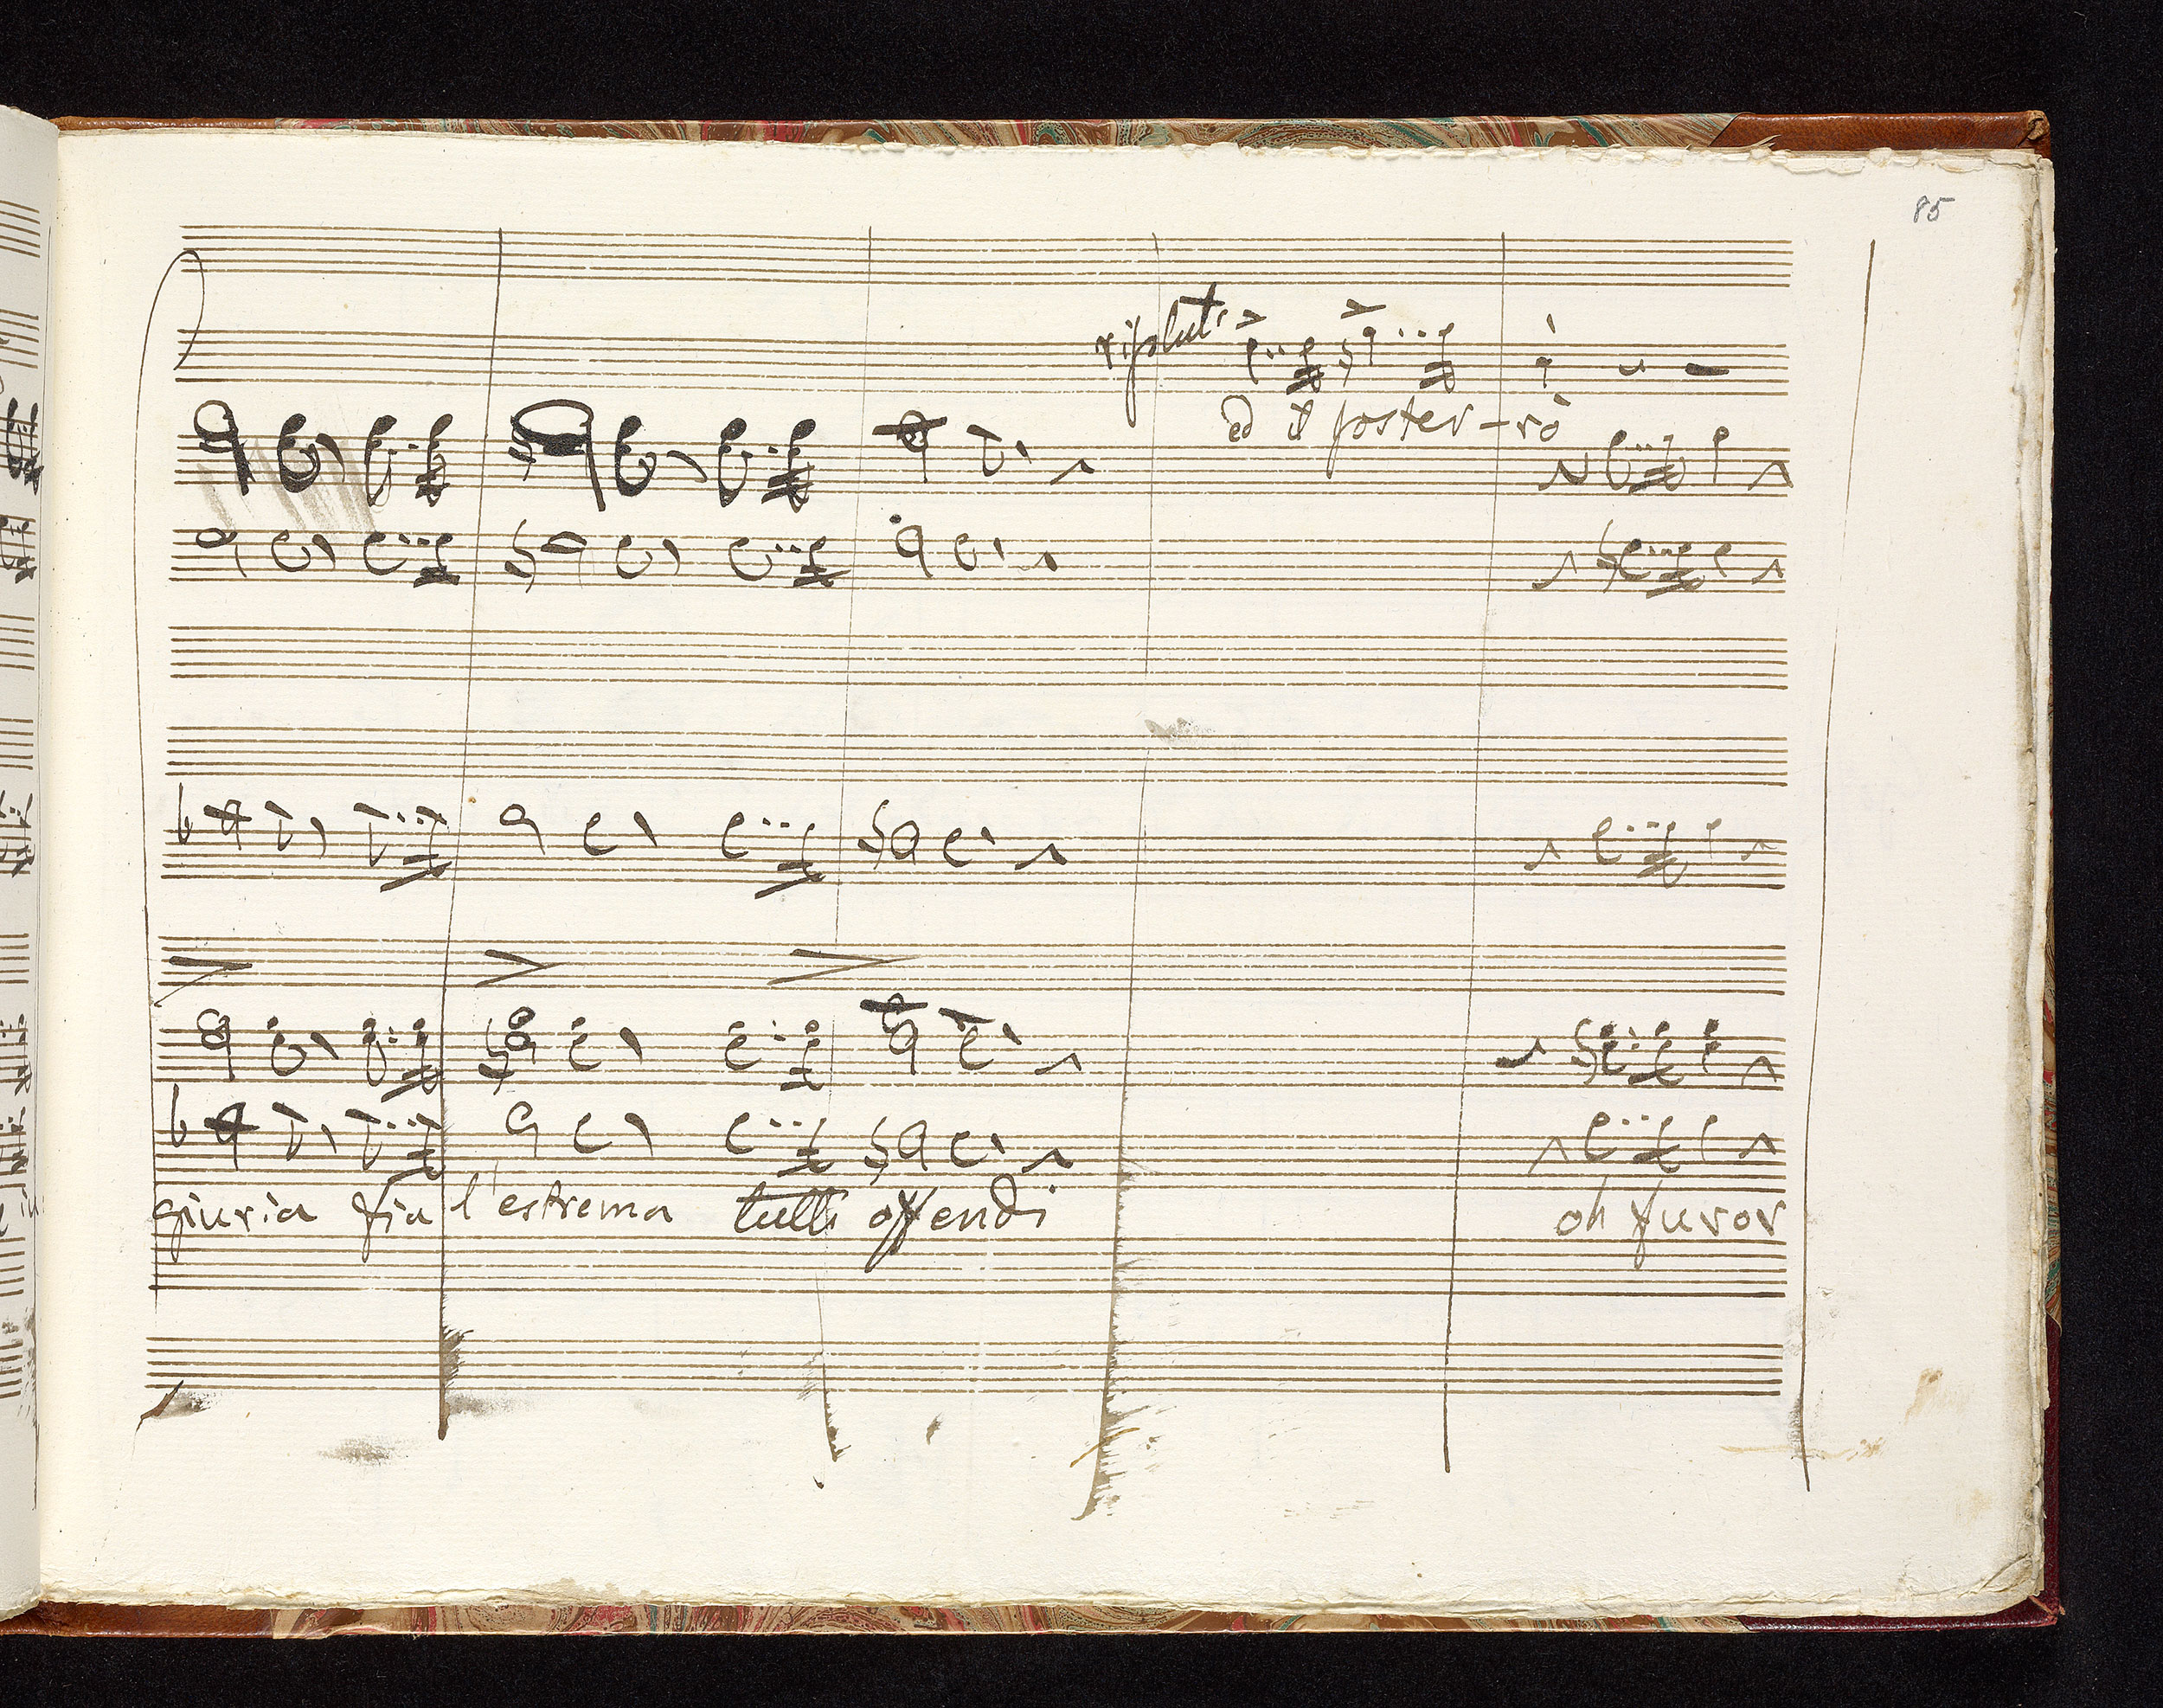 85
risoluto
ed il soster-rò
giuria fia l'estrema tutti offendi
oh furor